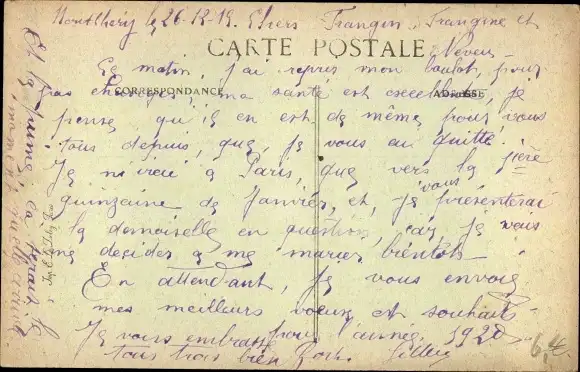 Montlhéry le 26-12-19. Chers Frangin, Frangine et
Neveu
CARTE POSTALE
CORRESPONDANCE
ADRESSE
Ce matin, j'ai repris mon boulot, pour
pas changer, ma santé est excellente, je
pense qu'il en est de même pour vous
tous depuis, que, je vous ai quitté.
Je n'irai à Paris, que vers la 1ière
quinzaine de Janvier, et, je vous présenterai
la demoiselle en question, car, je vais
me décider à me marier bientôt
En attendant, je vous envoie
mes meilleurs vœux et souhaits
pour l'année 1920
Je vous embrasse
tous trois bien fort.
Et la
6,4